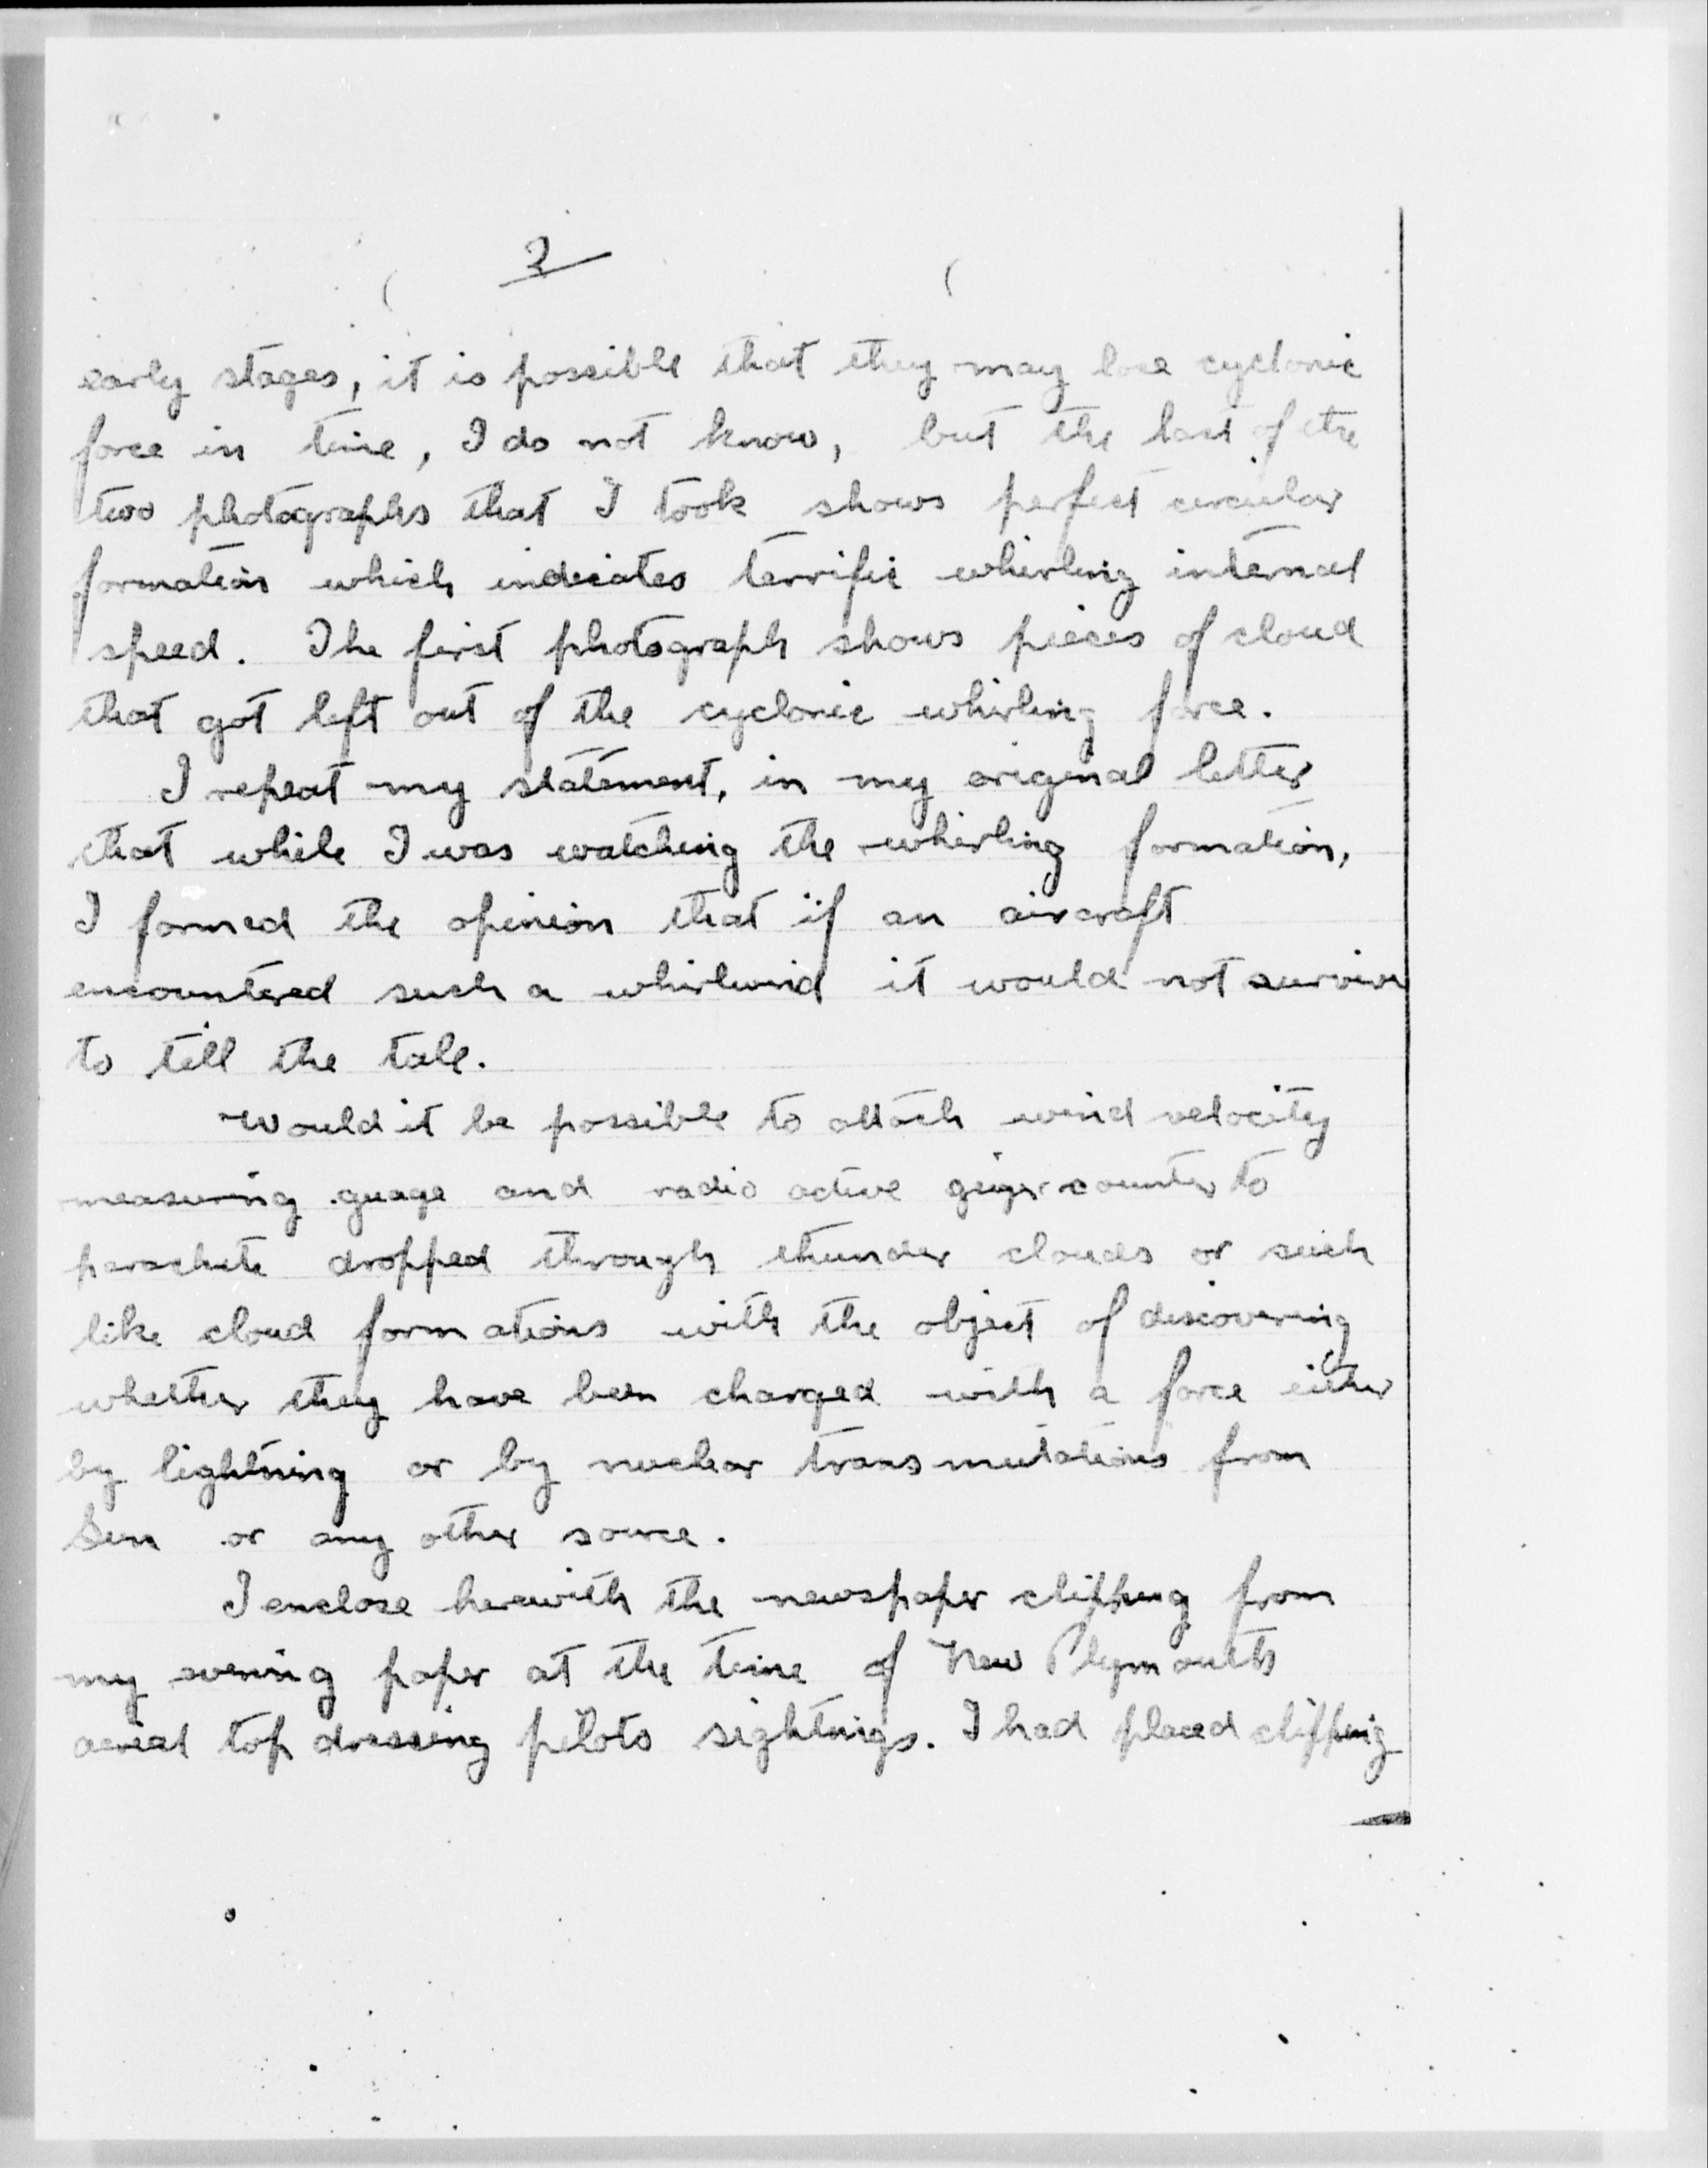 2
early stages, it is possible that they may lose cyclonic
force in time, I do not know, but the last of the
two photographs that I took shows perfect circular
formation which indicates terrific whirling internal
speed. The first photograph shows pieces of cloud
that got left out of the cyclonic whirling force.
I repeat my statement, in my original letter
that while I was watching the whirling formation,
I formed the opinion that if an aircraft
encountered such a whirlwind it would not survive
to tell the tale.
Would it be possible to attach wind velocity
measuring guage and radio active geiger counter to
parachute dropped through thunder clouds or such
like cloud formations with the object of discovering
whether they have been charged with a force either
by lightning or by nuclear transmutations from
Sun or any other source.
I enclose herewith the newspaper clipping from
my evening paper at the time of New Plymouth
aerial top dressing pilots sightings. I had placed clipping